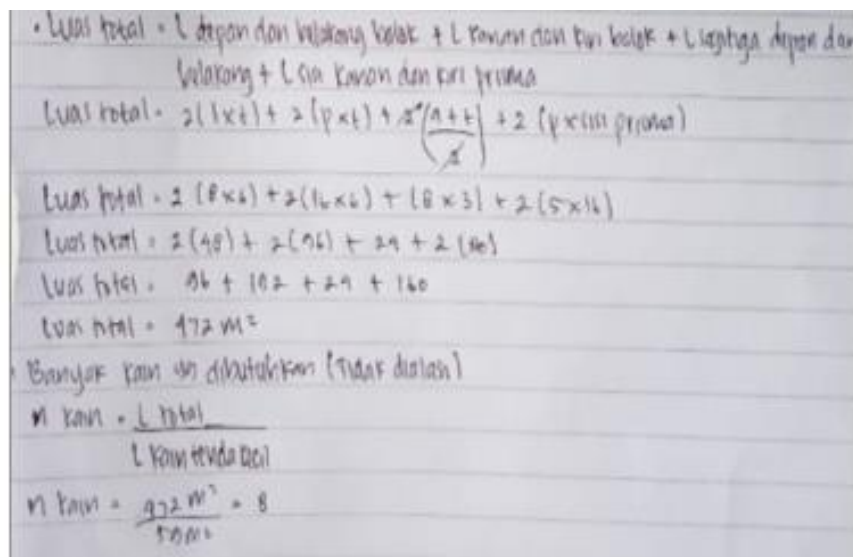 • Luas total = L depan dan belakang balok + L kanan dan kiri balok + L segitiga depan dan
belakang + L sisi kanan dan kiri prisma
Luas total = 2(l×t) + 2(p×t) + 2(a×t / 2) + 2(p×sisi prisma)
Luas total = 2(8×6) + 2(16×6) + (8×3) + 2(5×16)
Luas total = 2(48) + 2(96) + 24 + 2(80)
Luas total = 96 + 192 + 24 + 160
Luas total = 472 m²
• Banyak kain yg dibutuhkan (Tidak dialasi)
n kain = L total
L kain tenda kecil
n kain = 472 m² = 8
50 m²